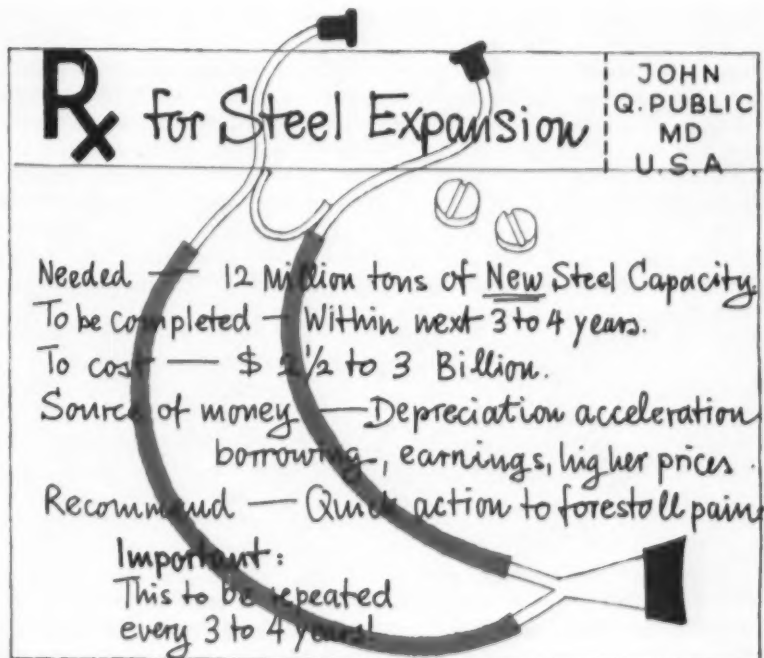 Rx for Steel Expansion
JOHN
Q. PUBLIC
MD
U.S.A
Needed — 12 Million tons of New Steel Capacity
To be completed — Within next 3 to 4 years.
To cost — $ 2 1/2 to 3 Billion.
Source of money — Depreciation acceleration
borrowing, earnings, higher prices.
Recommend — Quick action to forestall pain
Important:
This to be repeated
every 3 to 4 years!